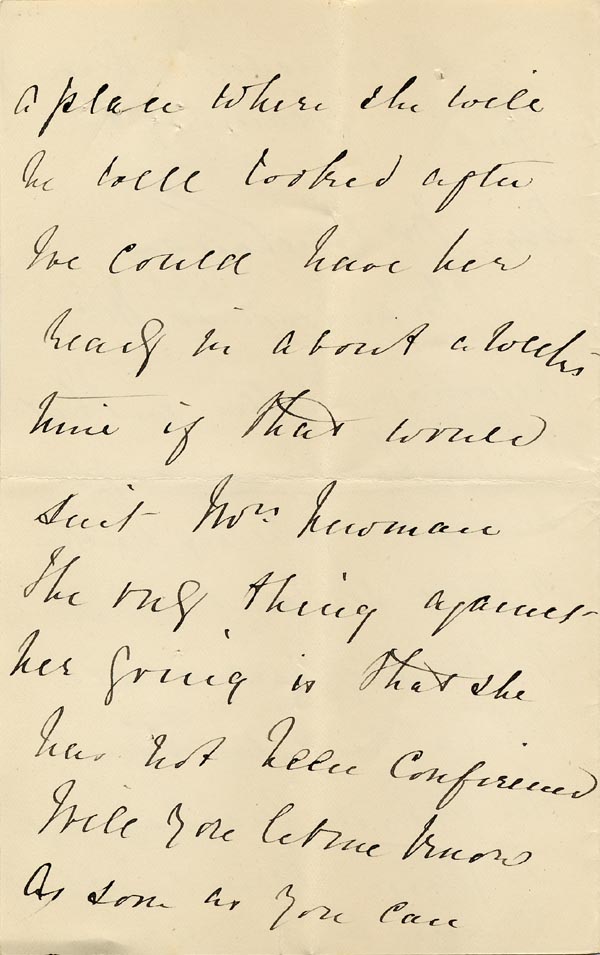 a place where she will
be well looked after
We could have her
ready in about a weeks
time if that would
suit Mrs Newman
The only thing against
her going is that she
has not been confirmed
Will you let me know
As soon as you can